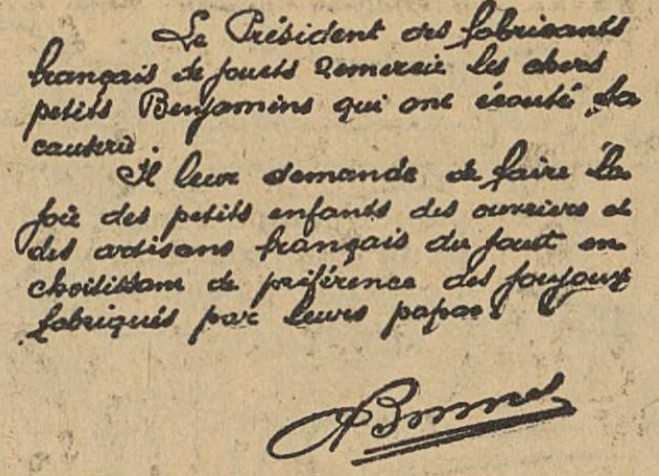 Le Président des fabricants
français de jouets remercie les chers
petits Benjamins qui ont écouté sa
causerie.
Il leur demande de faire la
joie des petits enfants des ouvriers et
des artisans français du jouet en
choisissant de préférence des joujoux
fabriqués par leurs papas.